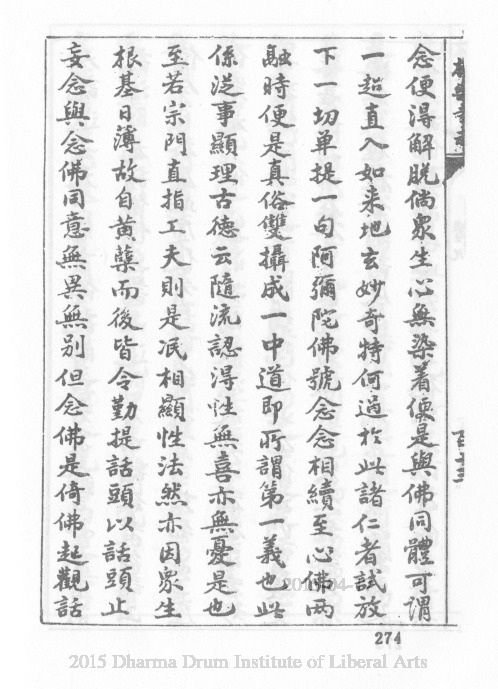 念便得解脫倘眾生心無染着便是與佛同體可謂
一超直入如来地玄妙奇特何過於此諸仁者試放
下一切单提一句阿彌陀佛號念念相續至心佛两
融時便是真俗雙攝成一中道即所謂第一義也此
係従事顯理古德云隨流認得性無喜亦無憂是也
至若宗門直指工夫則是泯相顯性法然亦因衆生
根基日薄故自黄蘖而後皆令勤提話頭以話頭止
妄念與念佛同意無異無別但念佛是倚佛起觀話
274
2015 Dharma Drum Institute of Liberal Arts